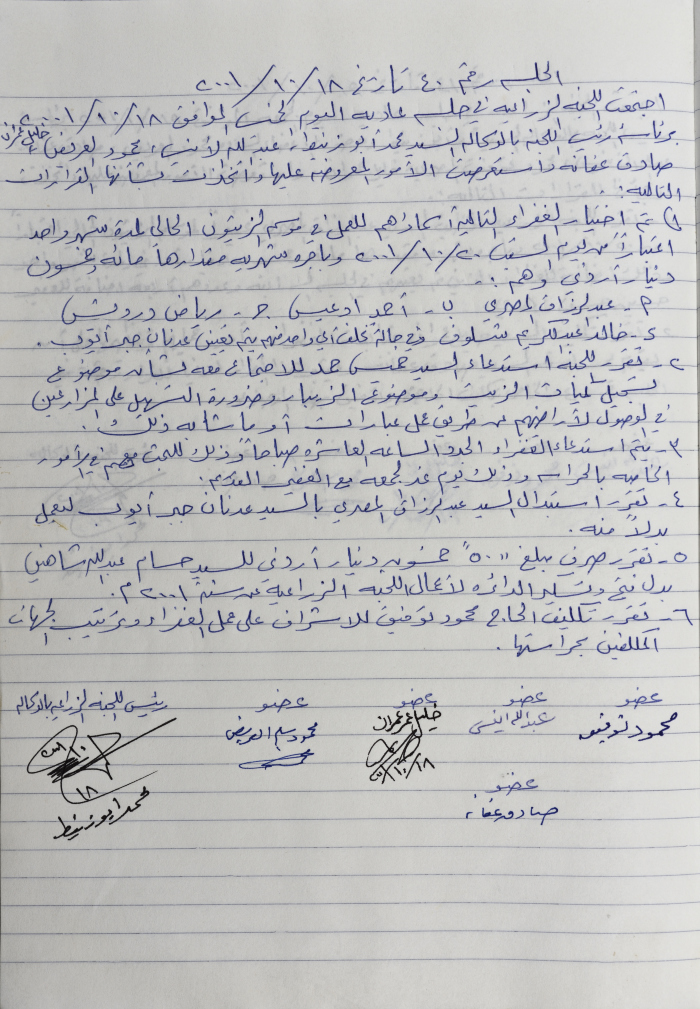 الجلسه رقم ٤٠ تاريخ ١٨/١٠/٢٠٠١
اجتمعت اللجنه الزراعيه في جلسه عاديه اليوم الخميس الموافق ١٨/١٠/٢٠٠١ خليل عمران
برئاسة رئيس اللجنه بالوكاله السيد محمد ابو زنيط، عبد لله الأنيس، محمود العريض،
صادق عفانه وأستعرضت الأمور المعروضه عليها وأتخذت بشأنها القرارات
التاليه:
١) تم اختيار الغفراء التاليه أسماؤهم للعمل في موسم الزيتون الحالي لمدة شهر واحد
اعتباراً من يوم السبت ٢٠/١٠/٢٠٠١ وباجره شهريه مقدارها مائه وخمسون
دينار أردني وهم:-
٢- عبد الرزاق المصري ب- أحمد ادعيس ج- رياض درويش
د- خالد عبد الكريم شتلوف وفي حالة تخلف أي واحد منهم يتم تعيين عدنان جبر أيوب.
٢- تقرر للجنه استدعاء السيد خميس حمد للاجتماع معه بشأن موضوع
تسجيل كميات الزيت وموضوع الزيبار وضرورة التسهيل على المزارعين
في لوصول لأراضهم عن طريق عمل عبارات أو ما شابه ذلك.
٣- يتم استدعاء الغفراء الحدد الساعه العاشره صباحاً وذلك للبحث معهم في الأمور
الخاصه بالحراسه وذلك يوم غد لجمعه مع الغفير القديم.
٤- تقرر أستبدال السيد عبد الرزاق المصري بالسيد عدنان جبر أيوب ليعمل
بدلاً منه.
٥- تقرر صرف مبلغ "٥٠" خمسون دينار أردني للسيد حسام عبد لله شاهين
بدل فتح وتسكير الدائره لأعمال اللجنه الزراعية عن سنة ٢٠٠١م.
٦- تقرر تكليف الحاج محمود توفيق للاشراف على عمل الغفراء وترتيب الجهات
المكلفين بحراستها.
عضو عضو عضو عضو رئيس اللجنه الزراعيه بالوكاله
محمود توفيق عبد الله انيس خليل عمر عمران محمود سليم العريض
١٨/١٠
١٨
محمد ابو زنيط
عضو
صادق عفانه